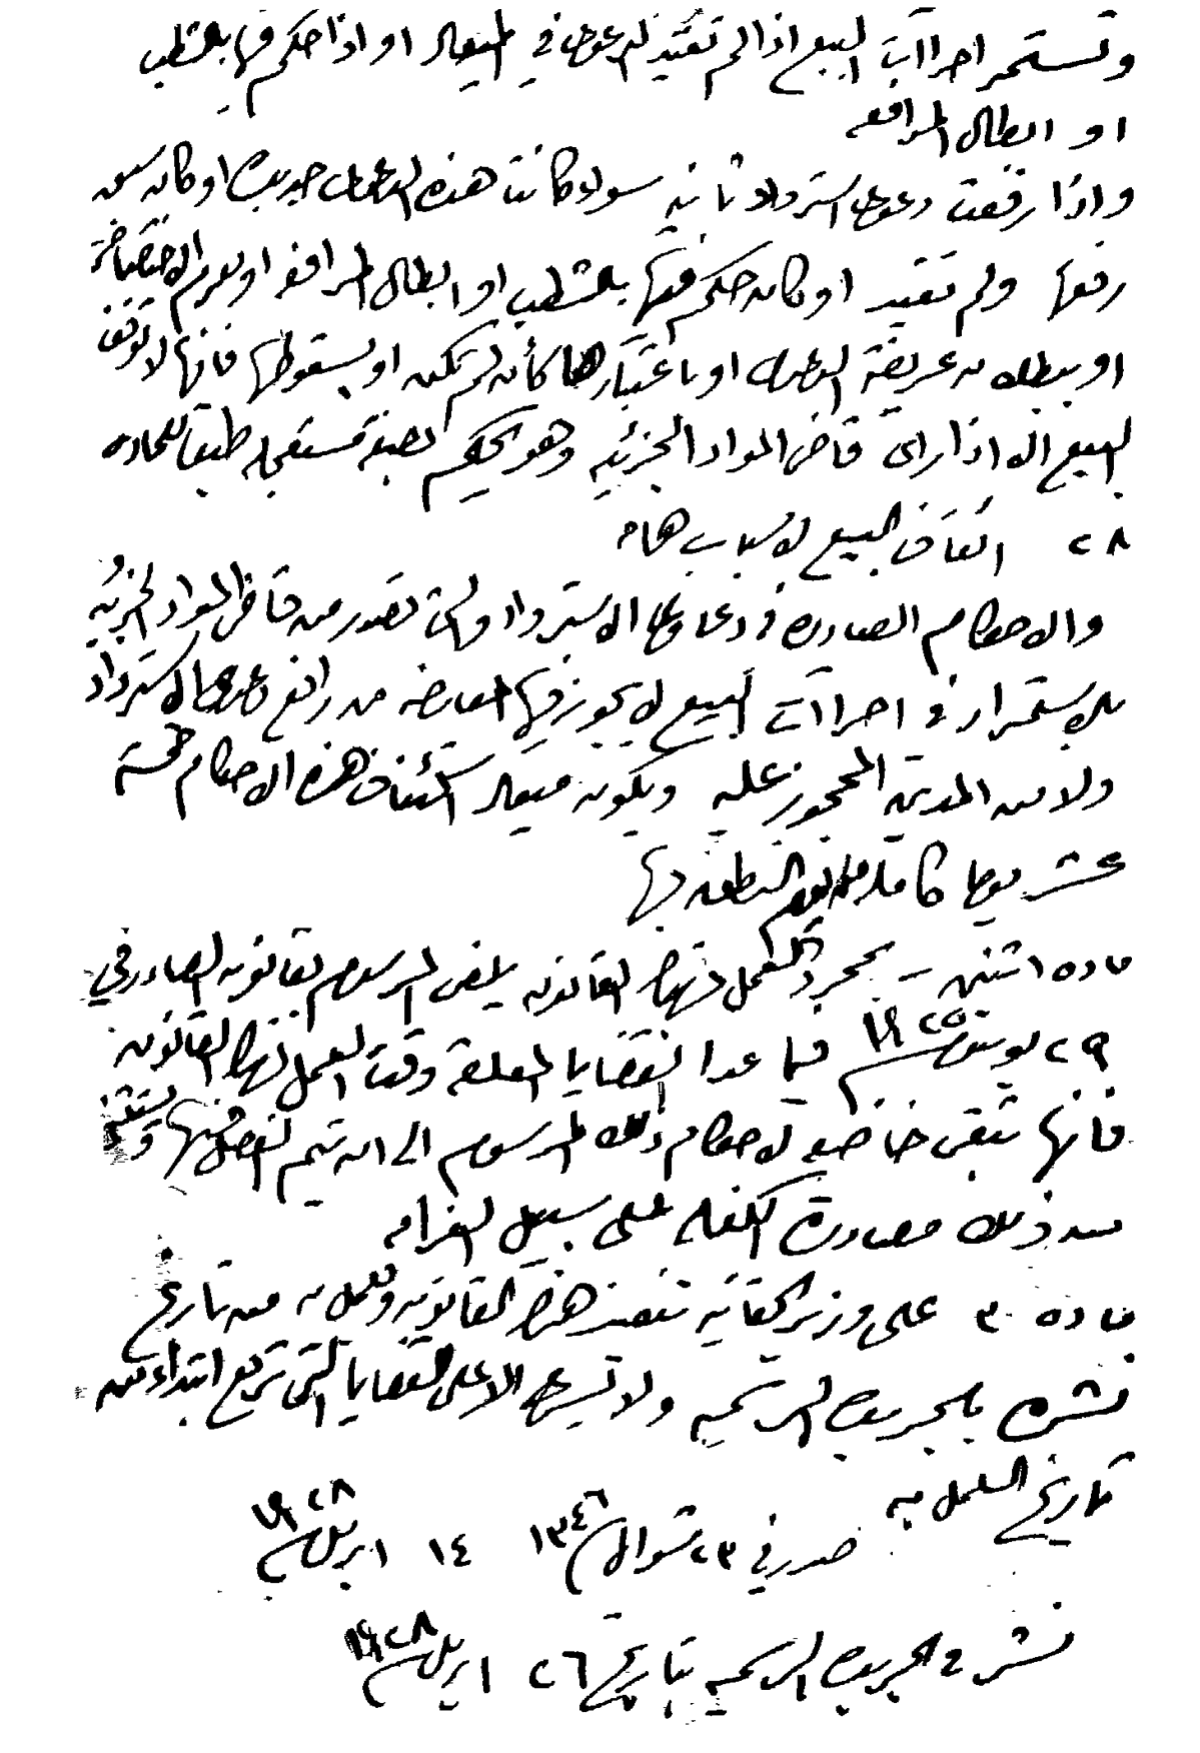 وتستمر اجراآت البيع اذا لم تقيد الدعوى في الميعاد او اذا حكم فيها بالشطب
او ابطال المرافعه
واذا رفعت دعوى استرداد ثانيه سواء كانت هذه الدعوى جديده او كان سبق
رفعها ولم تقيد او كان حكم فيها بالشطب او ابطال المرافعه او بعدم الاختصاص
او ببطلان عريضة الدعوى او باعتبارها كأن لم تكن او بسقوطها فانها لا توقف
البيع الا اذا رأى قاضى المواد الجزئيه وهو يحكم بصفة مستعجله طبقا للماده
٢٨ ايقاف البيع لاسباب هامه
والاحكام الصادره فى دعاوى الاسترداد والتى تصدر من قاضى المواد الجزئيه
بالاستمرار فى اجراآت البيع لا يجوز فيها المعارضه من رافع دعوى الاسترداد
ولا من المدين المحجوز عليه ويكون ميعاد استئناف هذه الاحكام خمسة
عشر يوما كامله من يوم النطق بها
ماده اثنين - بمجرد العمل بهذا القانون يلغى المرسوم بقانون الصادر في
٢٩ يونيو ١٩٢٥ فيما عدا القضايا المعلقه وقت العمل بهذا القانون
فانها تبقى خاضعه لاحكام ذلك المرسوم الى ان يتم الفصل فيها ويستثنى
من ذلك مصادرة الكفاله على سبيل الغرامه
ماده ٣ على وزير الحقانيه تنفيذ هذا القانون ويعمل به من تاريخ
نشره بالجريده الرسميه ولا يسرى الا على القضايا التى ترفع ابتداء من
تاريخ العمل به
صدر في ٢٣ شوال ١٣٤٦ ١٤ ابريل ١٩٢٨
نشر فى الجريده الرسميه بتاريخ ٢٦ ابريل ١٩٢٨